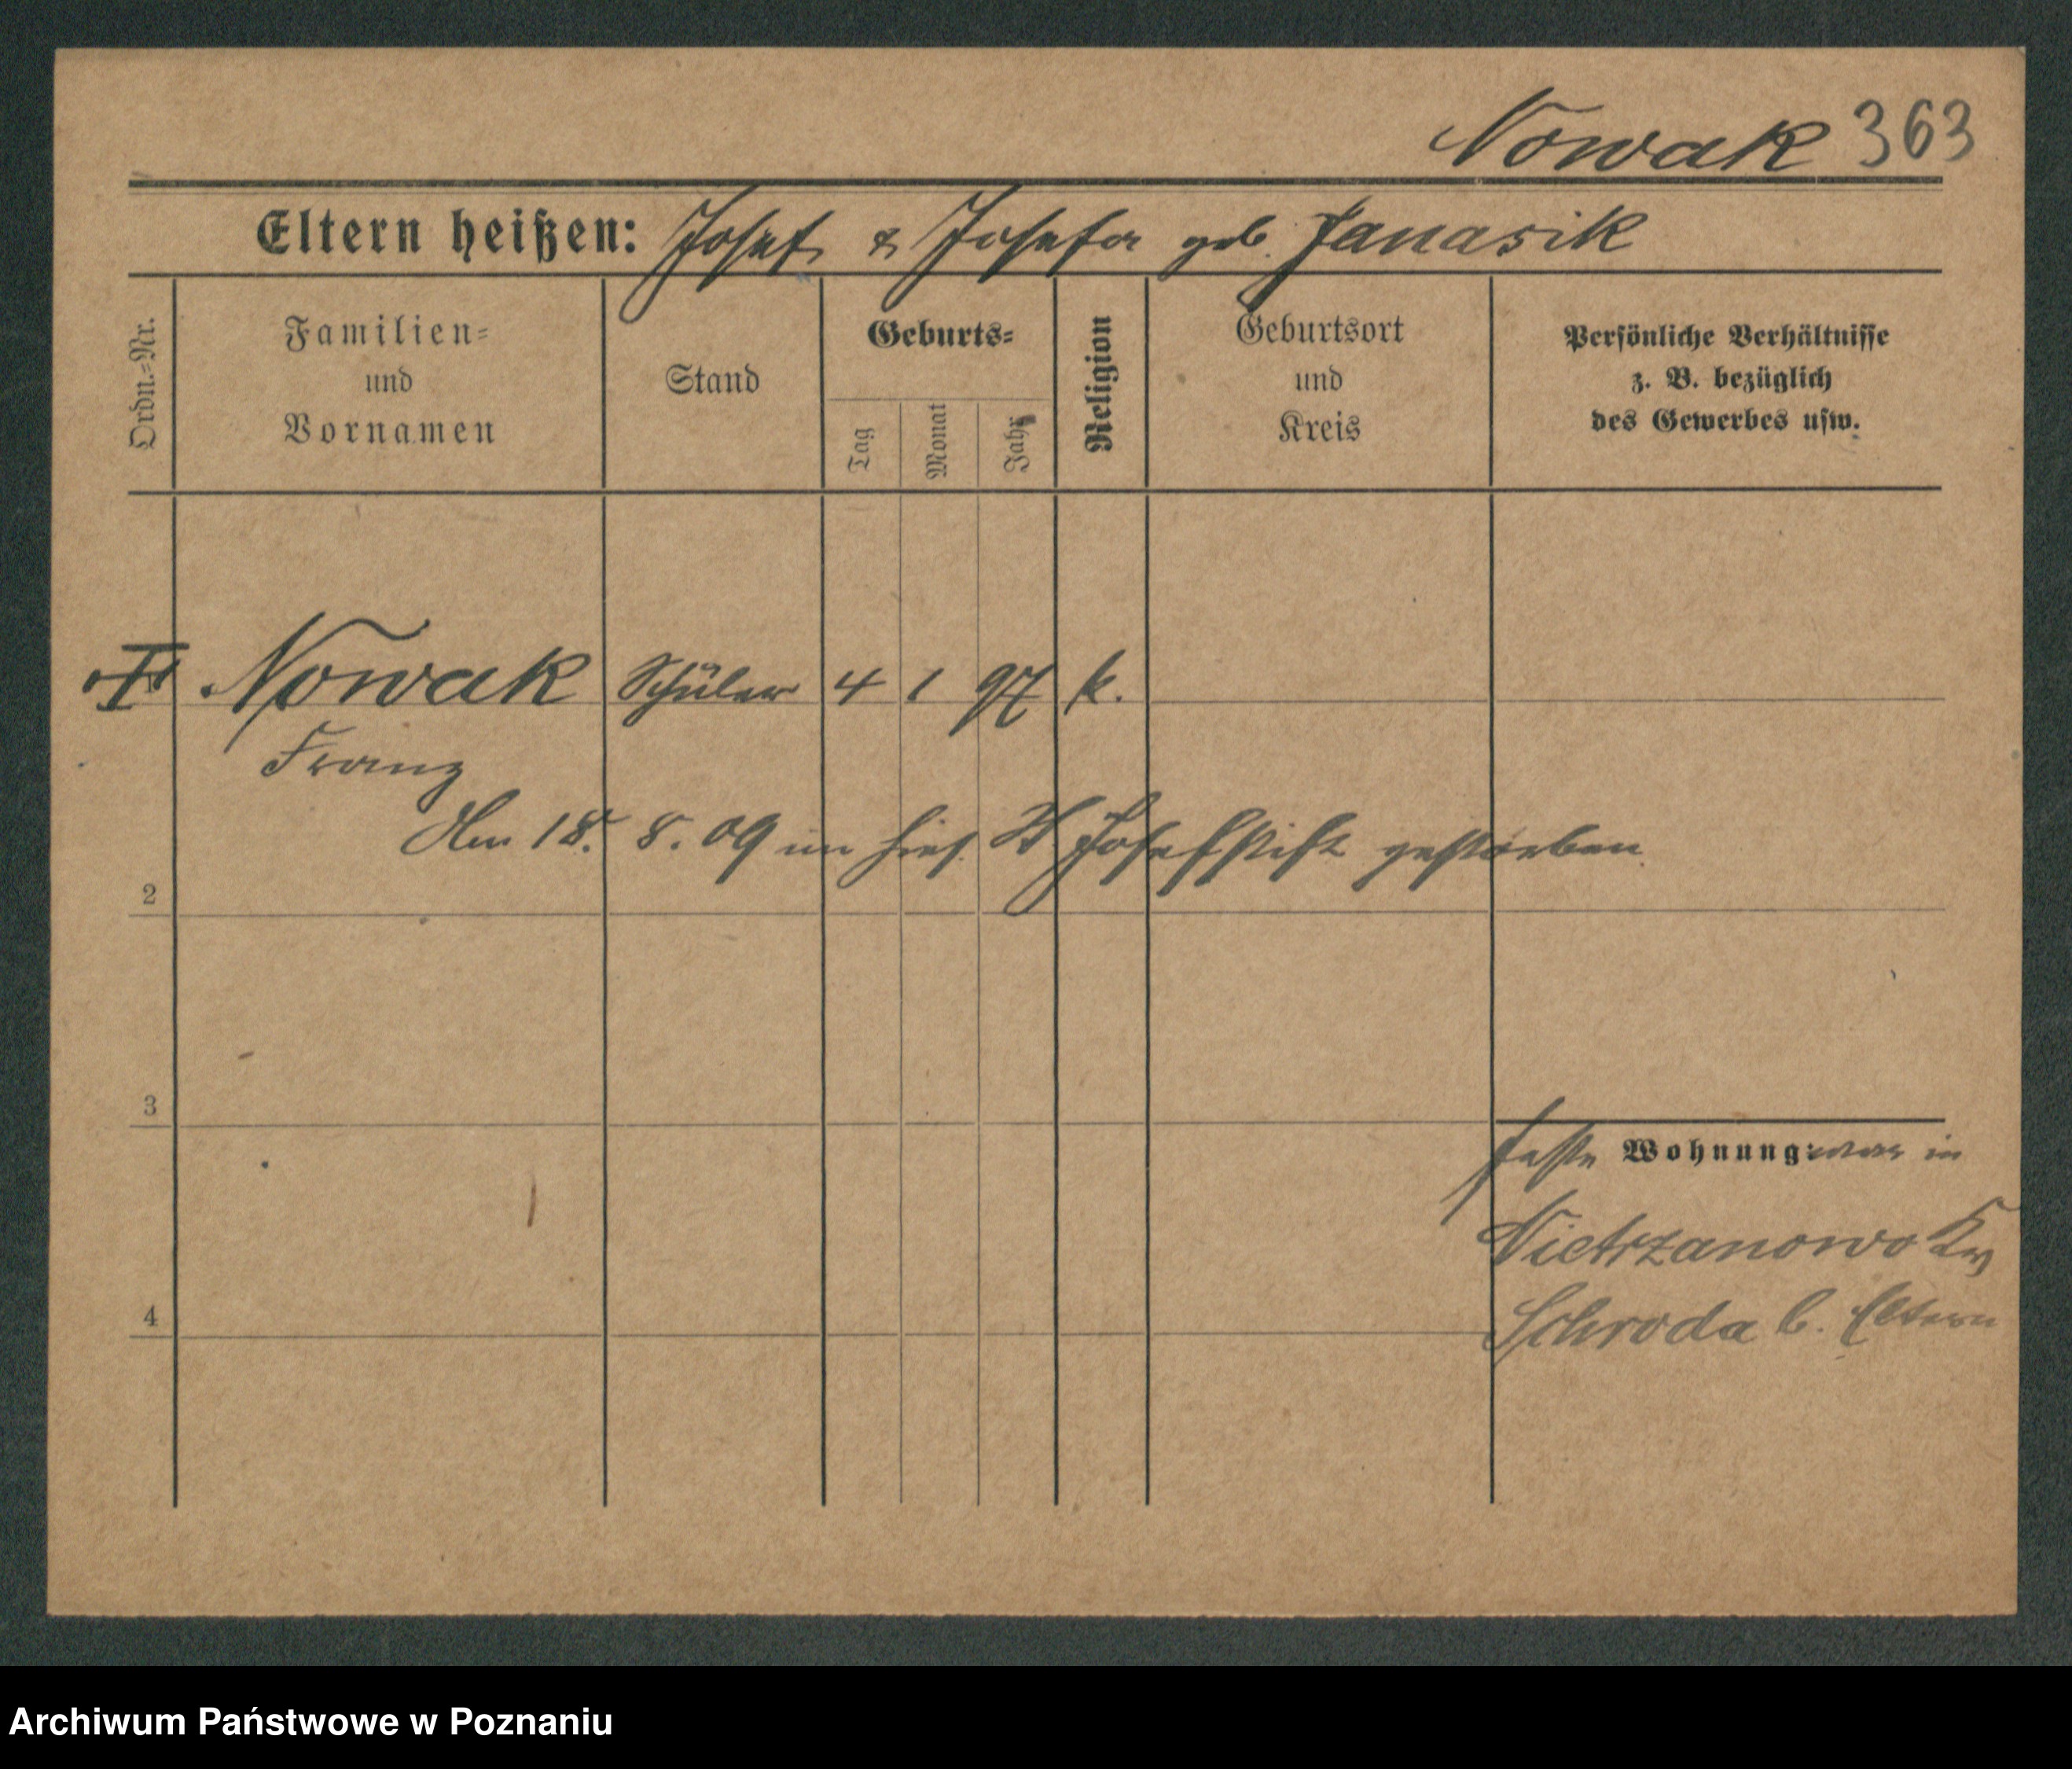 Nowak 363
Eltern heißen: Josef & Josefa geb. Janasik
Ordn.-Nr.
Familien-
und
Vornamen
Stand
Geburts-
Tag
Monat
Jahr
Religion
Geburtsort
und
Kreis
Persönliche Verhältnisse
z. B. bezüglich
des Gewerbes usw.
Nowak Schüler 4 1 97 k.
Franz
Am 18. 8. 09 im hies. St Josefstift gestorben
2
3
feste Wohnung: war in
Nietrzanowo Kr
4
Schroda b. Eltern
Archiwum Państwowe w Poznaniu